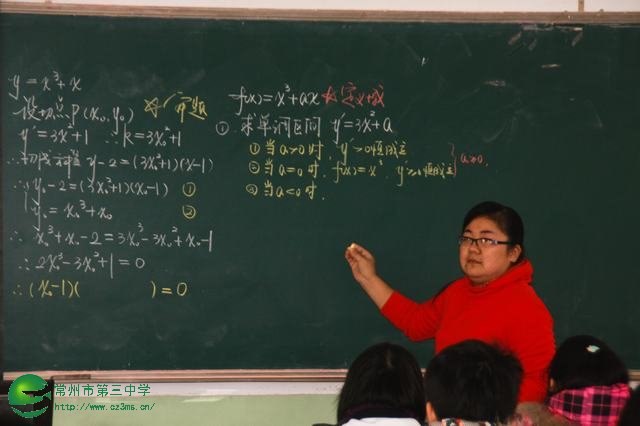 y = x³ + x
设切点P(x₀, y₀) ☆审题
y' = 3x² + 1 ∴ k = 3x₀² + 1
∴ 切线方程 y - 2 = (3x₀² + 1)(x - 1)
∴ { y₀ - 2 = (3x₀² + 1)(x₀ - 1) ①
y₀ = x₀³ + x₀ ②
∴ x₀³ + x₀ - 2 = 3x₀³ - 3x₀² + x₀ - 1
∴ 2x₀³ - 3x₀² + 1 = 0
∴ (x₀ - 1)( ) = 0
f(x) = x³ + ax ☆定义域
①. 求单调区间 y' = 3x² + a
①当 a > 0 时, y' > 0恒成立
②当 a = 0 时, f(x) = x³, y' ≥ 0恒成立 } a ≥ 0,
③当 a < 0 时,
常州市第三中学
http://www.cz3ms.cn/